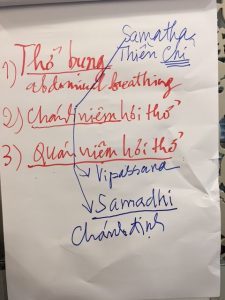 Samatha
Thiền Chỉ
1) Thở bụng
abdominal breathing
2) Chánh niệm hơi thở
3) Quán niệm hơi thở
Vipassana
Samadhi
Chánh định